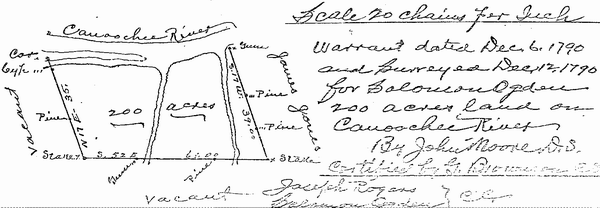 Scale 20 chains per Inch
Canoochee River
Warrant dated Dec. 6. 1790
and Surveyed Dec. 12, 1790
for Solomon Ogden
200 acres land on
Canoochee River
By John Moore D.S.
Certified by
Gum
Pine
Pine
James Jones
S. 17 W. 39.00
200 acres
Vacant
Pine
N 17 E 36.
Stake
S. 52 E
Pine
Stake
Vacant
Joseph Rogers
Solomon Ogden } C.C.